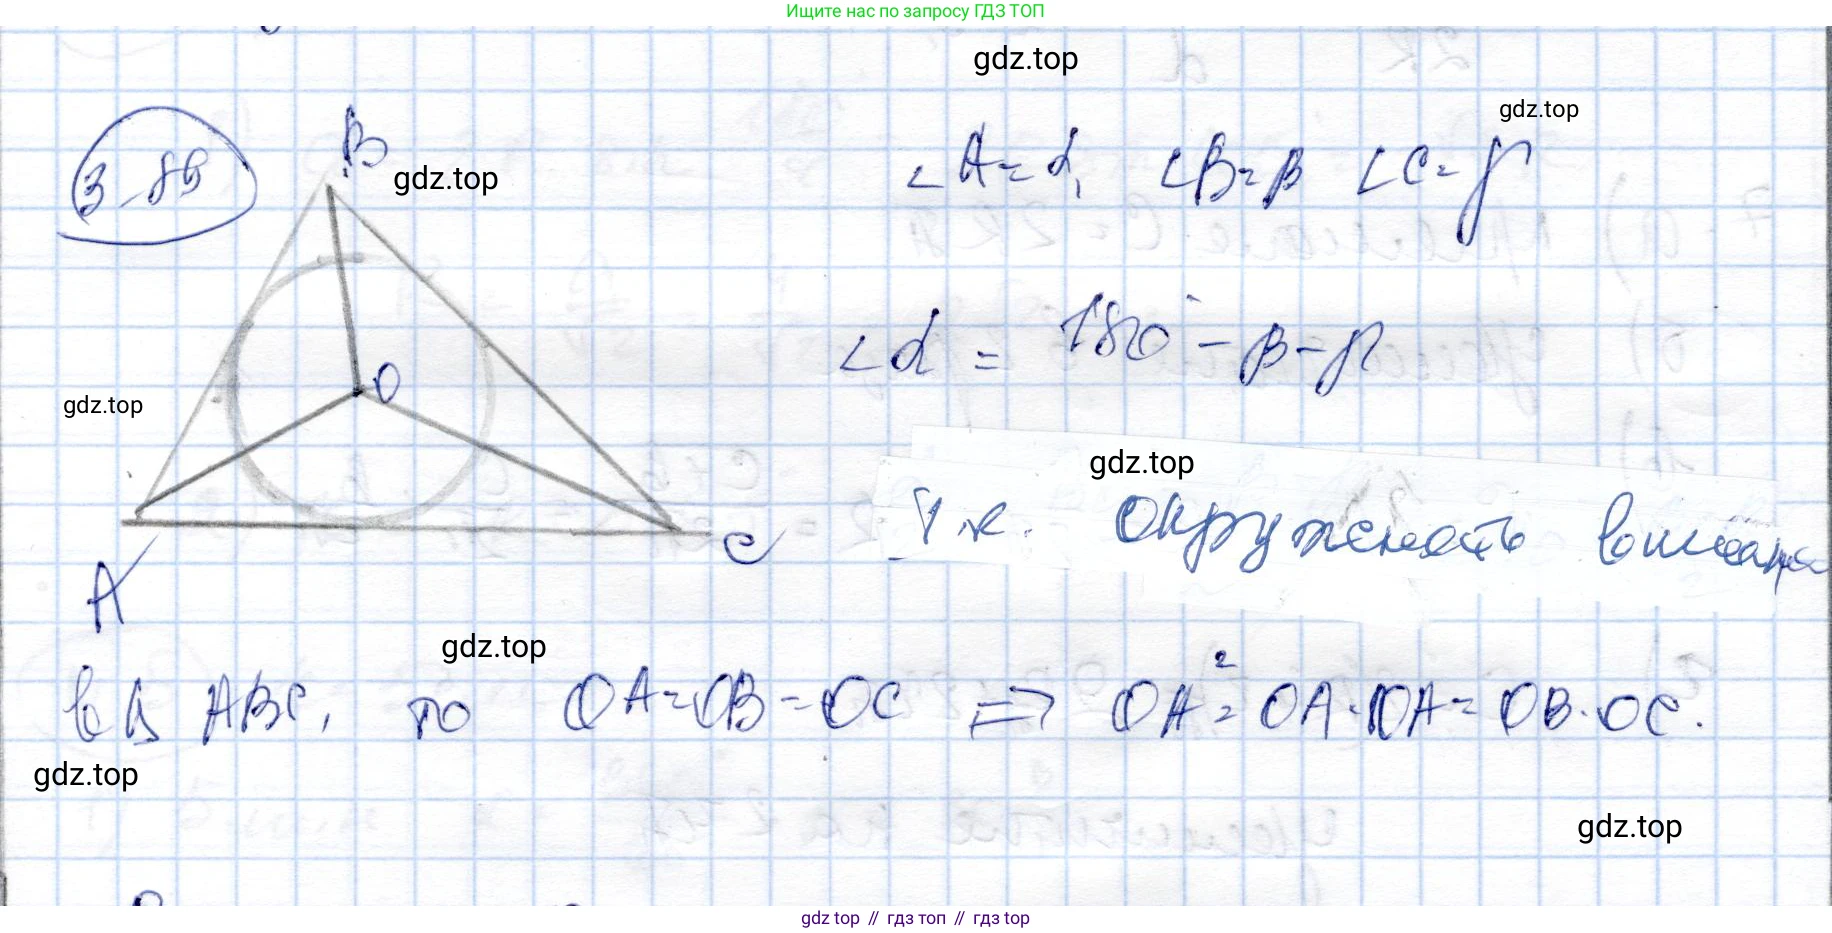 Ищите нас по запросу ГДЗ ТОП
gdz.top
gdz.top
3-89
B
gdz.top
∠A=α, ∠B=β ∠C=γ
∠α = 180° - β - γ
O
gdz.top
gdz.top
Т.к. окружность вписана
A
C
gdz.top
в Δ ABC, то OA=OB=OC => OA²=OA·OA=OB·OC.
gdz.top
gdz.top
gdz top // гдз топ // gdz top